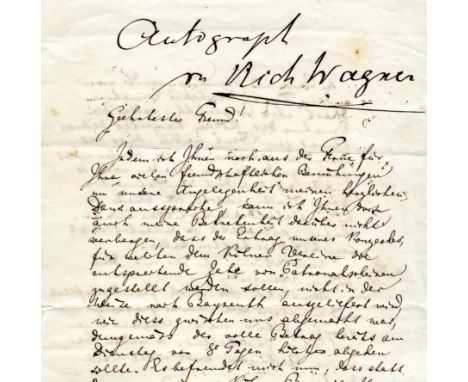 Autograph
von Rich Wagner
Geehrtester Freund!
Indem ich Ihnen noch aus der Ferne für
Ihre vielen freundschaftlichen Bemühungen
um unsere Angelegenheit meinen herzlichen
Dank ausspreche, kann ich Ihnen doch
auch meine Betretenheit darüber nicht
verbergen, dass der Ertrag unseres Konzertes,
für welchen dem Kölner Vereine die
entsprechende Zahl von Patronatscheinen
zugestellt werden sollen, nicht in der
Weise nach Bayreuth ausgeliefert wird,
wie diess zwischen uns abgemacht war,
demgemäss der volle Betrag bereits am
Dienstag vor 8 Tagen hierher abgehen
sollte. Es befremdet mich nun, dass statt